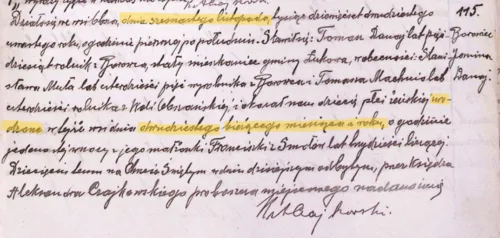 Działo się we wsi Obszy, dnia szesnastego listopada, tysiąc dziewięćset dwudziestego 115.
czwartego roku, o godzinie pierwszej po południu. Stawił się: Toman Banaj lat pięć- Borowiec
dziesiąt rolnik z Borowca, stały mieszkaniec gminy Łukowa, w obecności: Stani- Janina
sława Muła lat czterdzieści pięć wyrobnika z Borowca i Tomasza Machnio lat Banaj.
czterdzieści rolnika z Woli Obszańskiej, i okazał nam dziecię płci żeńskiej uro-
dzone w tejże wsi dnia dwudziestego bieżącego miesiąca i roku, o godzinie
jedenastej w nocy z jego małżonki Franciszki z Smolów lat trzydzieści liczącej.
Dziecięciu temu na Chrzcie Świętym w dniu dzisiejszym odbytym, przez Księdza
Aleksandra Czajkowskiego proboszcza miejscowego nadano imię